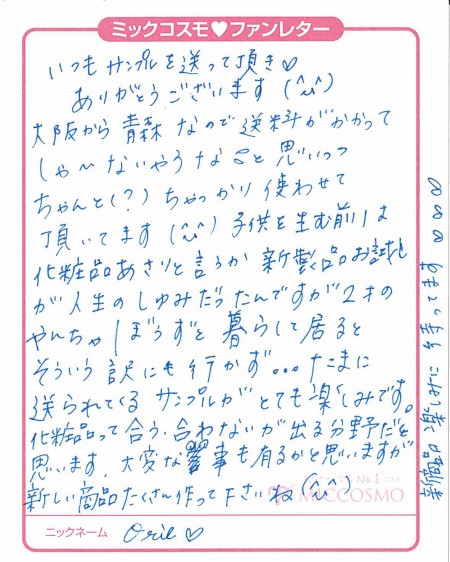 ミックコスモ♥ファンレター
いつもサンプルを送って頂き♡
ありがとうございます(^ω^)
大阪から青森なので送料がかかって
しゃ〜ないやろなぁと思いつつ
ちゃんと(?)ちゃっかり使わせて
頂いてます(^ω^)子供を生む前は
化粧品あさりと言うか新製品お試し
が人生のしゅみだったんですが2才の
やんちゃぼうずと暮らして居ると
そういう訳にも行かず...たまに
送られてくるサンプルがとても楽しみです。
化粧品って合う、合わないが出る分野だと
思います。大変な事も有るかと思いますが
新しい商品たくさん作って下さいね(^ω^)
No.1
MICCOSMO
ニックネーム Orie♡
新商品楽しみに待ってます